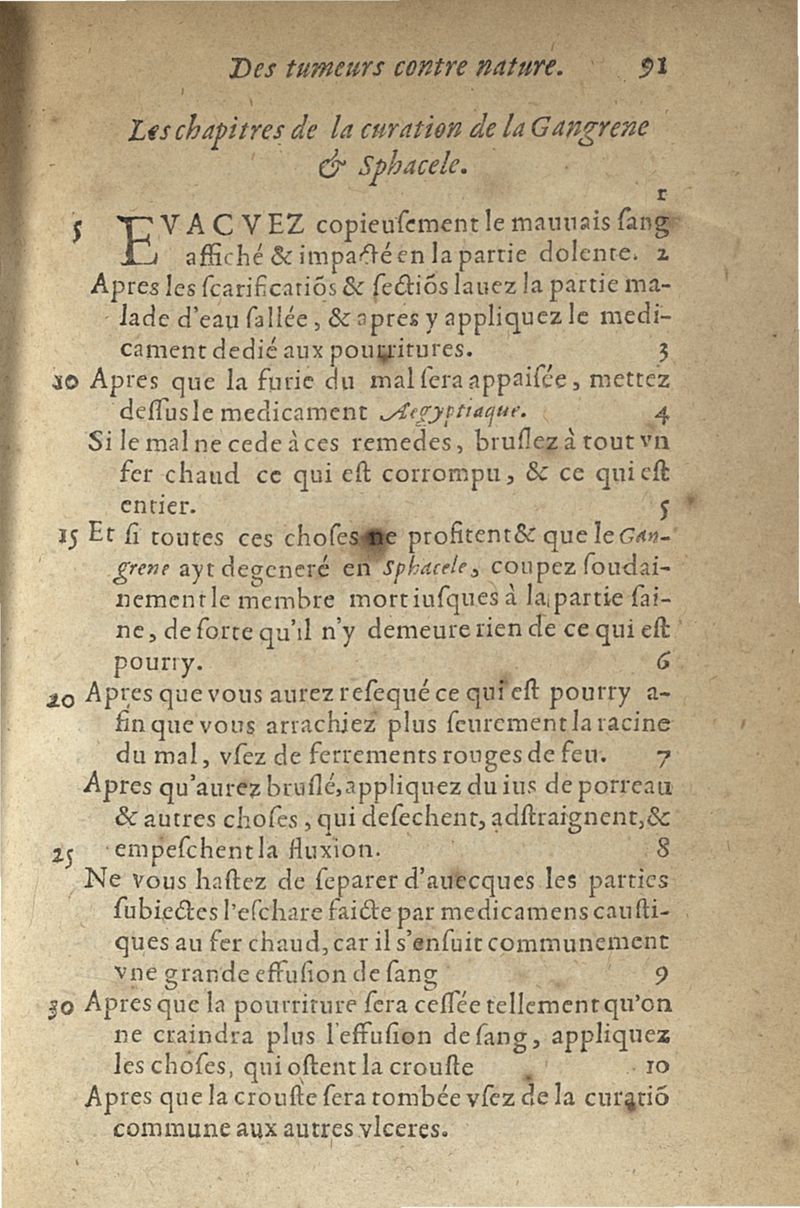 Des tumeurs contre nature. 91
Les chapitres de la curation de la Gangrene
& Sphacele.
1
5 EVACVEZ copieuſement le mauuais ſang
affiché & impacté en la partie dolente. 2
Apres les ſcarificatiõs & ſectiõs lauez la partie ma-
lade d'eau ſallée, & apres y appliquez le medi-
cament dedié aux pourritures. 3
10 Apres que la furie du mal ſera appaiſée, mettez
deſſus le medicament Aegyptiaque. 4
Si le mal ne cede à ces remedes, bruſlez à tout vn
fer chaud ce qui eſt corrompu, & ce qui eſt
entier. 5
15 Et ſi toutes ces choſes ne profitent & que le Gan-
grene ayt degeneré en Sphacele, coupez ſoudai-
nement le membre mort iuſques à la partie ſai-
ne, de ſorte qu'il n'y demeure rien de ce qui eſt
pourry. 6
20 Apres que vous aurez reſequé ce qui eſt pourry a-
fin que vous arrachiez plus ſeurement la racine
du mal, vſez de ferrements rouges de feu. 7
Apres qu'aurez bruſlé, appliquez du ius de porreau
& autres choſes, qui deſechent, adſtraignent, &
25 empeſchent la fluxion. 8
Ne vous haſtez de ſeparer d'auecques les parties
ſubiectes l'eſchare faicte par medicamens cauſti-
ques au fer chaud, car il s'enſuit communement
vne grande effuſion de ſang 9
30 Apres que la pourriture ſera ceſſée tellement qu'on
ne craindra plus l'effuſion de ſang, appliquez
les choſes, qui oſtent la crouſte 10
Apres que la crouſte ſera tombée vſez de la curatiõ
commune aux autres vlceres.